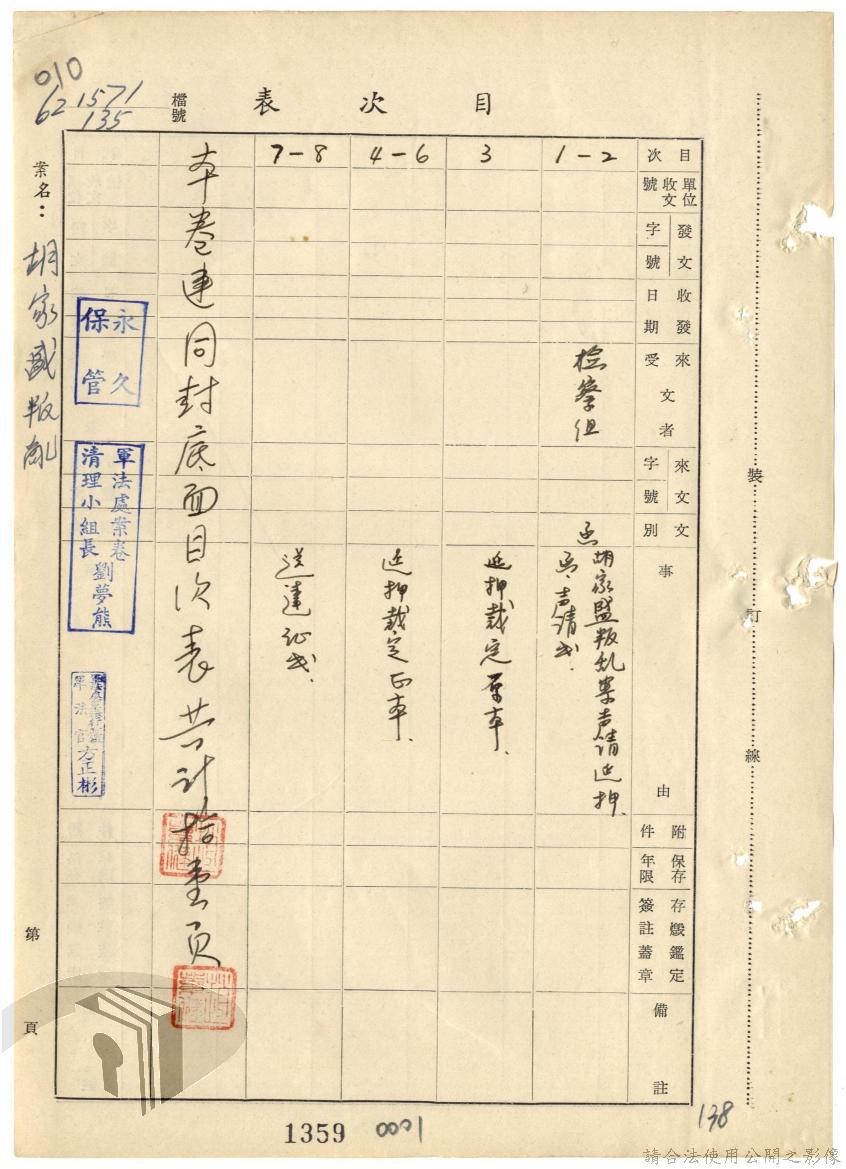 010
62 1571
135
檔號
目次表
案名：胡家盛叛亂
目次
單位收文號
發文字號
收發日期
來文受文者
來文字號
文別
事由
附件
保存年限
存燬鑑定簽註蓋章
備註
1-2
檢察組
函
胡家盛叛乱案声請延押、
函・声請书、
3
延押裁定原本、
4-6
延押裁定正本、
7-8
送達证书、
本卷連同封底面目次表共计拾壹頁
永久保管
軍法處案卷
清理小組長劉夢熊
軍法官方正彬
第頁
裝訂線
1359
0001
138
請合法使用公開之影像